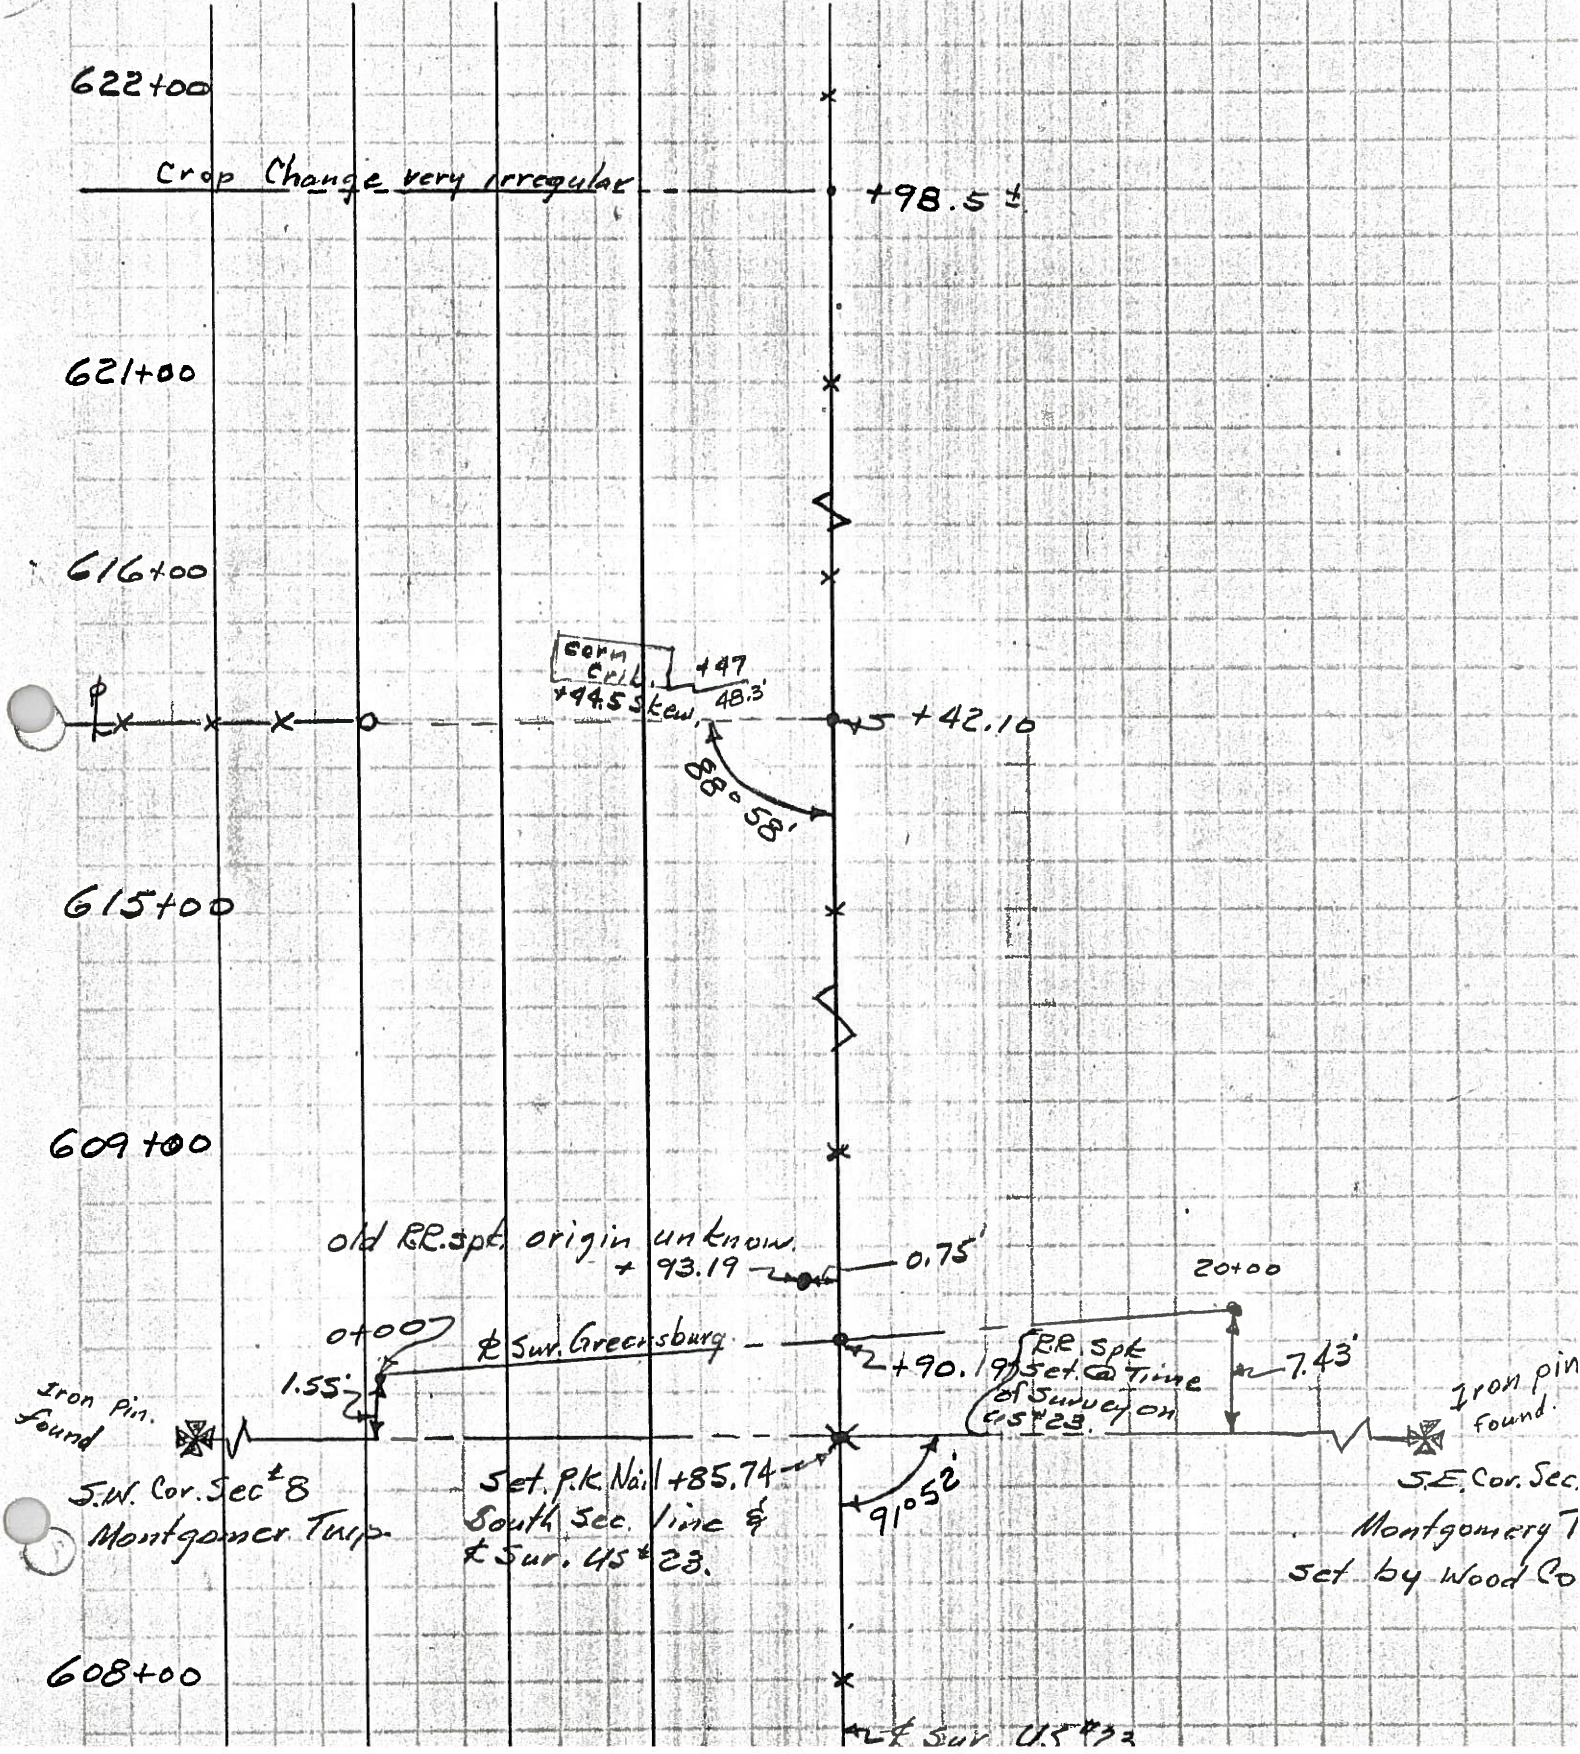 622+00
Crop Change very irregular
+98.5 ±
621+00
616+00
Corn
Crib.
+47
48.3'
+44.5 Skew.
℄
5 +42.10
88° 58'
615+00
609+00
old RR.spk. origin unknow.
+ 93.19
0.75'
20+00
0+00
℄ Sur. Greensburg
+90.19
R.R. Spk
Set @ Time
of Survey on
US #23.
7.43'
1.55'
Iron Pin.
found
Iron pin
found.
S.W. Cor. Sec # 8
Montgomer. Twp.
Set P.K. Nail +85.74
South Sec. line &
℄ Sur. US # 23.
91° 52'
S.E. Cor. Sec.
Montgomery T
set by Wood Co
608+00
℄ Sur US #23